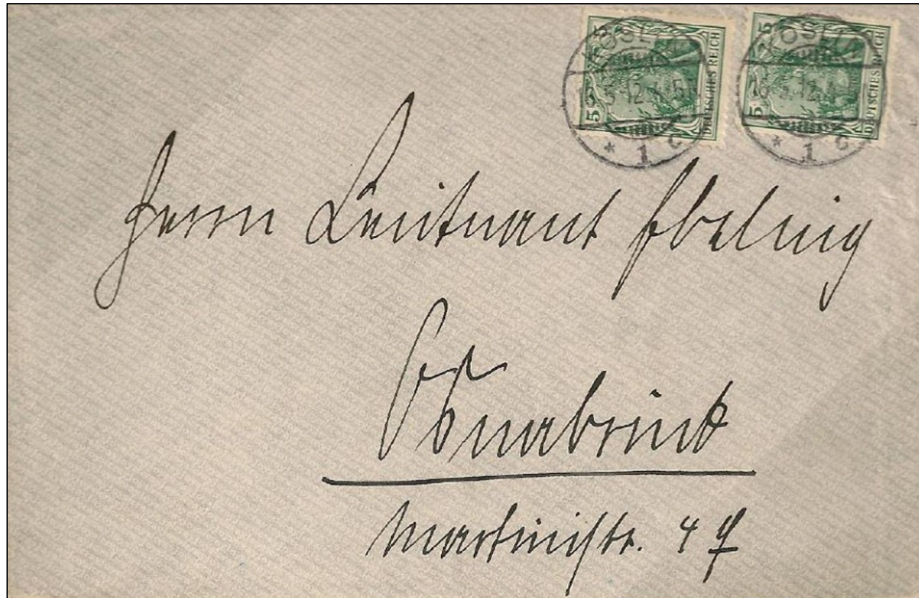 5 5 DEUTSCHES REICH
5 5 DEUTSCHES REICH
* 1 c
* 1 c
Herrn Leutnant Ebeling
Osnabrück
Martinistr. 4